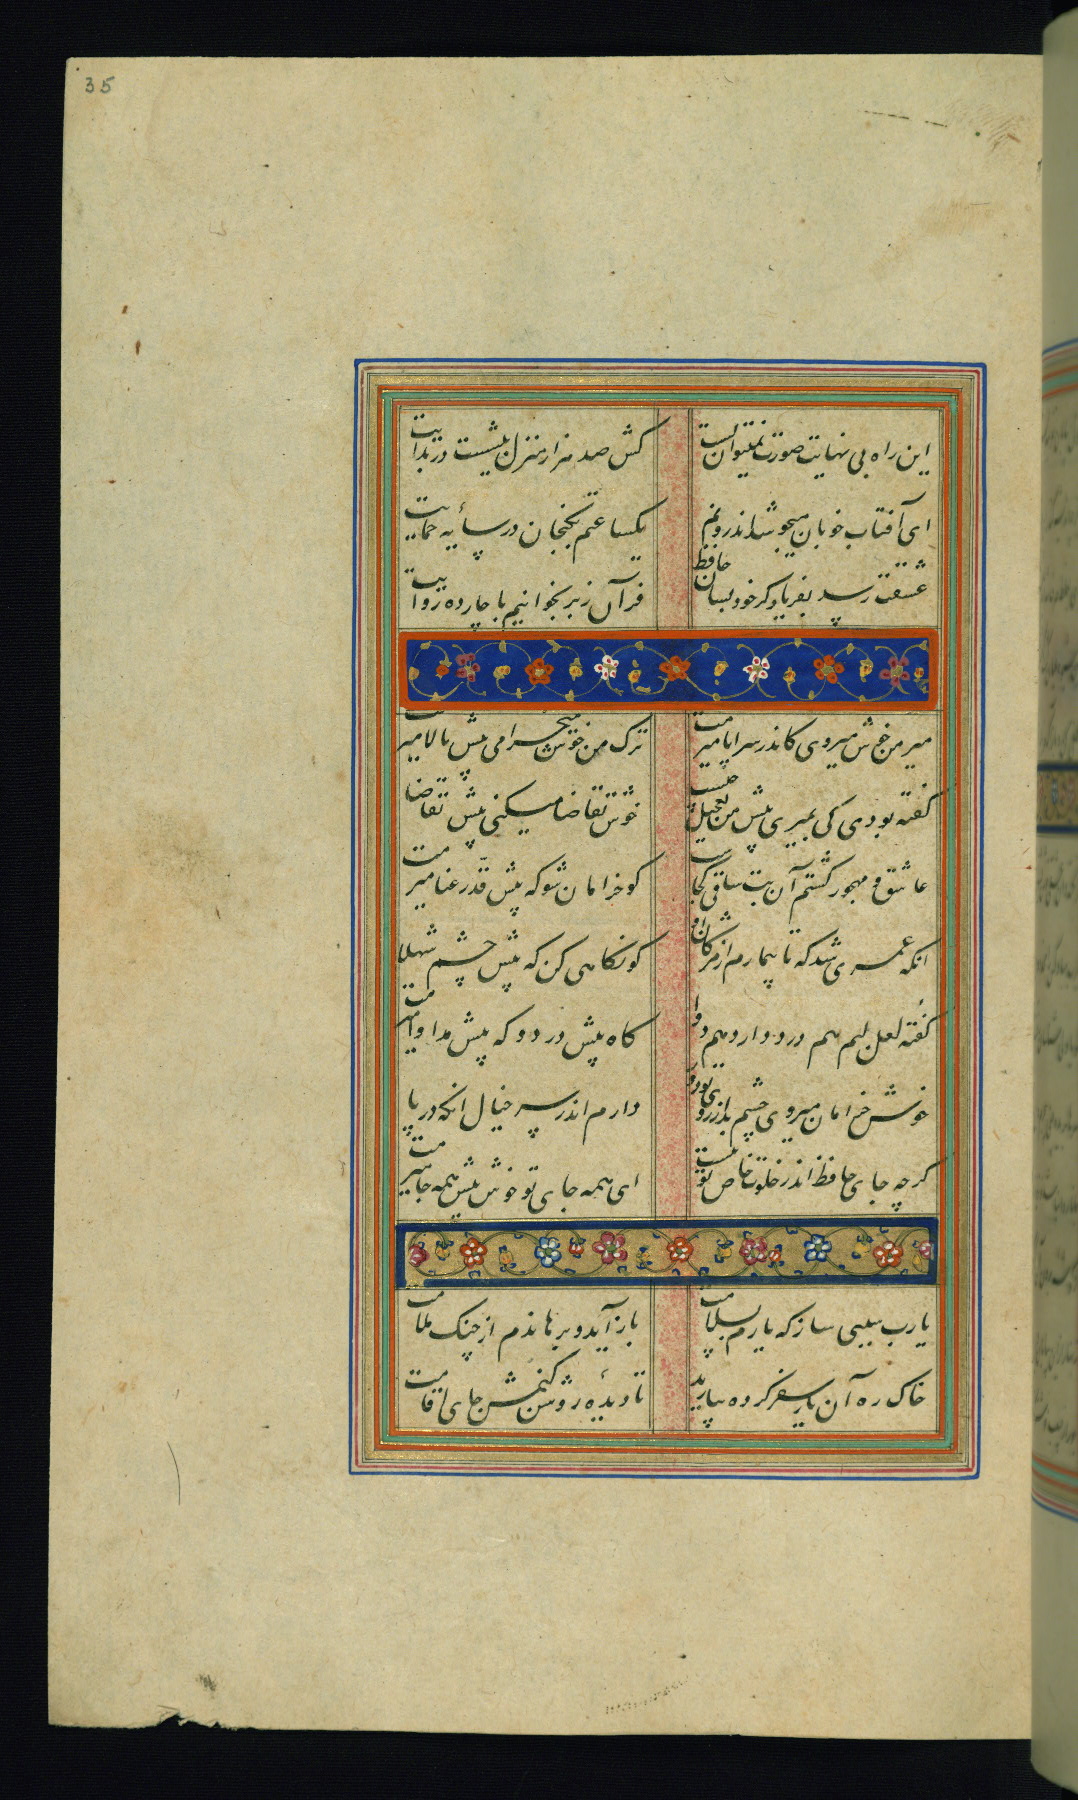 35
این راه بی نهایت صورت نمیتوان بست کش صد هزار منزل بیشست در بدایت
ای آفتاب خوبان میجوشد اندرونم یکساعتم بکنجان در سایه حمایت
عشقت رسد بفریاد کر خود بسان حافظ قرآن زبر بخوانیم با چارده روایت
میر من خوش میروی کاندر سراپا میرمت ترک من خوش میخرامی پیش بالا میرمت
کفته بودی کی بمیری پیش من تعجیل چیست خوش تقاضا میکنی پیش تقاضا میرمت
عاشق و مهجور کشتم آن بت ساقی کجاست کو خرامان شو که پیش قد رعنا میرمت
انکه عمری شد که تا بیمارم از مژکان او کو نکاهی کن که پیش چشم شهلا
کفته لعل لبم هم درد دارد هم دوا کاه پیش درد و که پیش مداوا میرمت
خوش خرامان میروی چشم بد از روی تو دور دارم اندر سر خیال انکه در پا
کرچه جای حافظ اندر خلوت خاص تو نیست ای همه جای تو خوش پیش همه جا میرمت
یارب سببی ساز که یارم بسلامت باز آید و برهاندم از چنک ملامت
خاک ره آن یار سفر کرده بیارید تا دیدۀ روشن کنمش جای اقامت